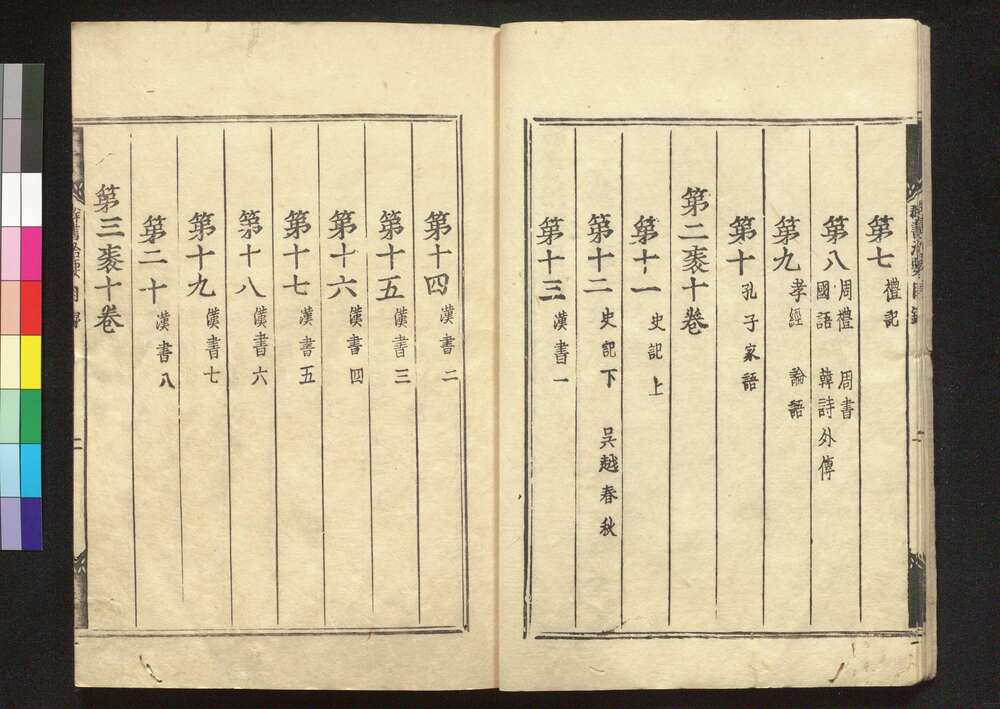 第七 禮記
第八 周禮 周書 國語 韓詩外傳
第九 孝經 論語
第十 孔子家語
第二袠十卷
第十一 史記上
第十二 史記下 吳越春秋
第十三 漢書一
第十四 漢書二
第十五 漢書三
第十六 漢書四
第十七 漢書五
第十八 漢書六
第十九 漢書七
第二十 漢書八
第三袠十卷
群書治要目錄 二